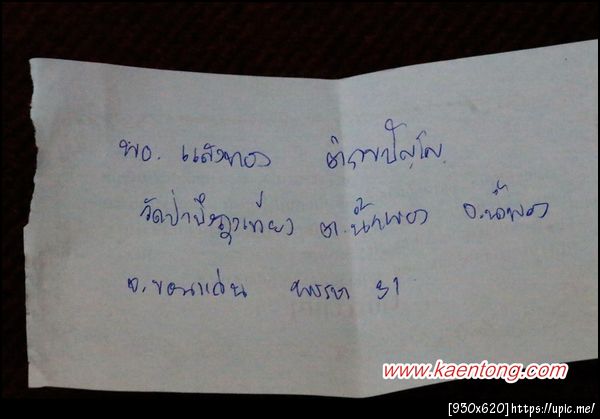 พอ. แสงทอง
วัดป่าบึง ต.น้ำพอง อ.น้ำพอง
จ.ขอนแก่น พรรษา 31
www.kaentong.com
[930x620]https://upic.me/